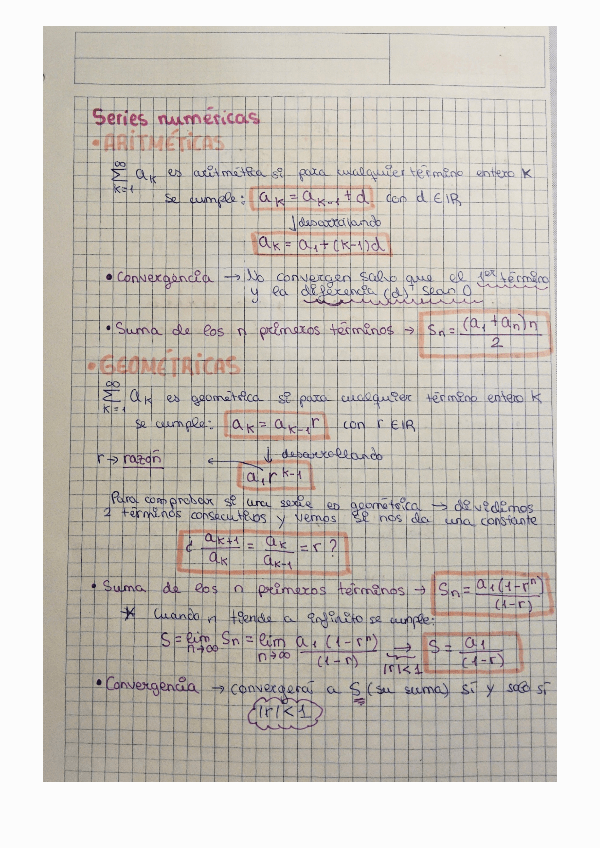 Series numéricas
• ARITMÉTICAS
∞
∑ aₖ es aritmética si para cualquier término entero K
k=1
se cumple: aₖ = aₖ₋₁ + d con d ∈ IR
↓ desarrollando
aₖ = a₁ + (k-1)d
• Convergencia → No convergen salvo que el 1er término
y la diferencia (d) sean 0.
• Suma de los n primeros términos → Sn = (a₁ + an)n / 2
• GEOMÉTRICAS
∞
∑ aₖ es geométrica si para cualquier término entero K
K=1
se cumple: aₖ = aₖ₋₁ r con r ∈ IR
↓ desarrollando
r → razón ← a₁ r^(k-1)
Para comprobar si una serie es geométrica → dividimos
2 términos consecutivos y vemos si nos da una constante
¿ aₖ₊₁ / aₖ = aₖ / aₖ₋₁ = r ?
• Suma de los n primeros términos → Sn = a₁(1-rⁿ) / (1-r)
* Cuando n tiende a infinito se cumple:
S = lim n→∞ Sn = lim n→∞ a₁(1-rⁿ) / (1-r) → |r|<1 S = a₁ / (1-r)
• Convergencia → convergerá a S (su suma) sí y solo sí
|r| < 1